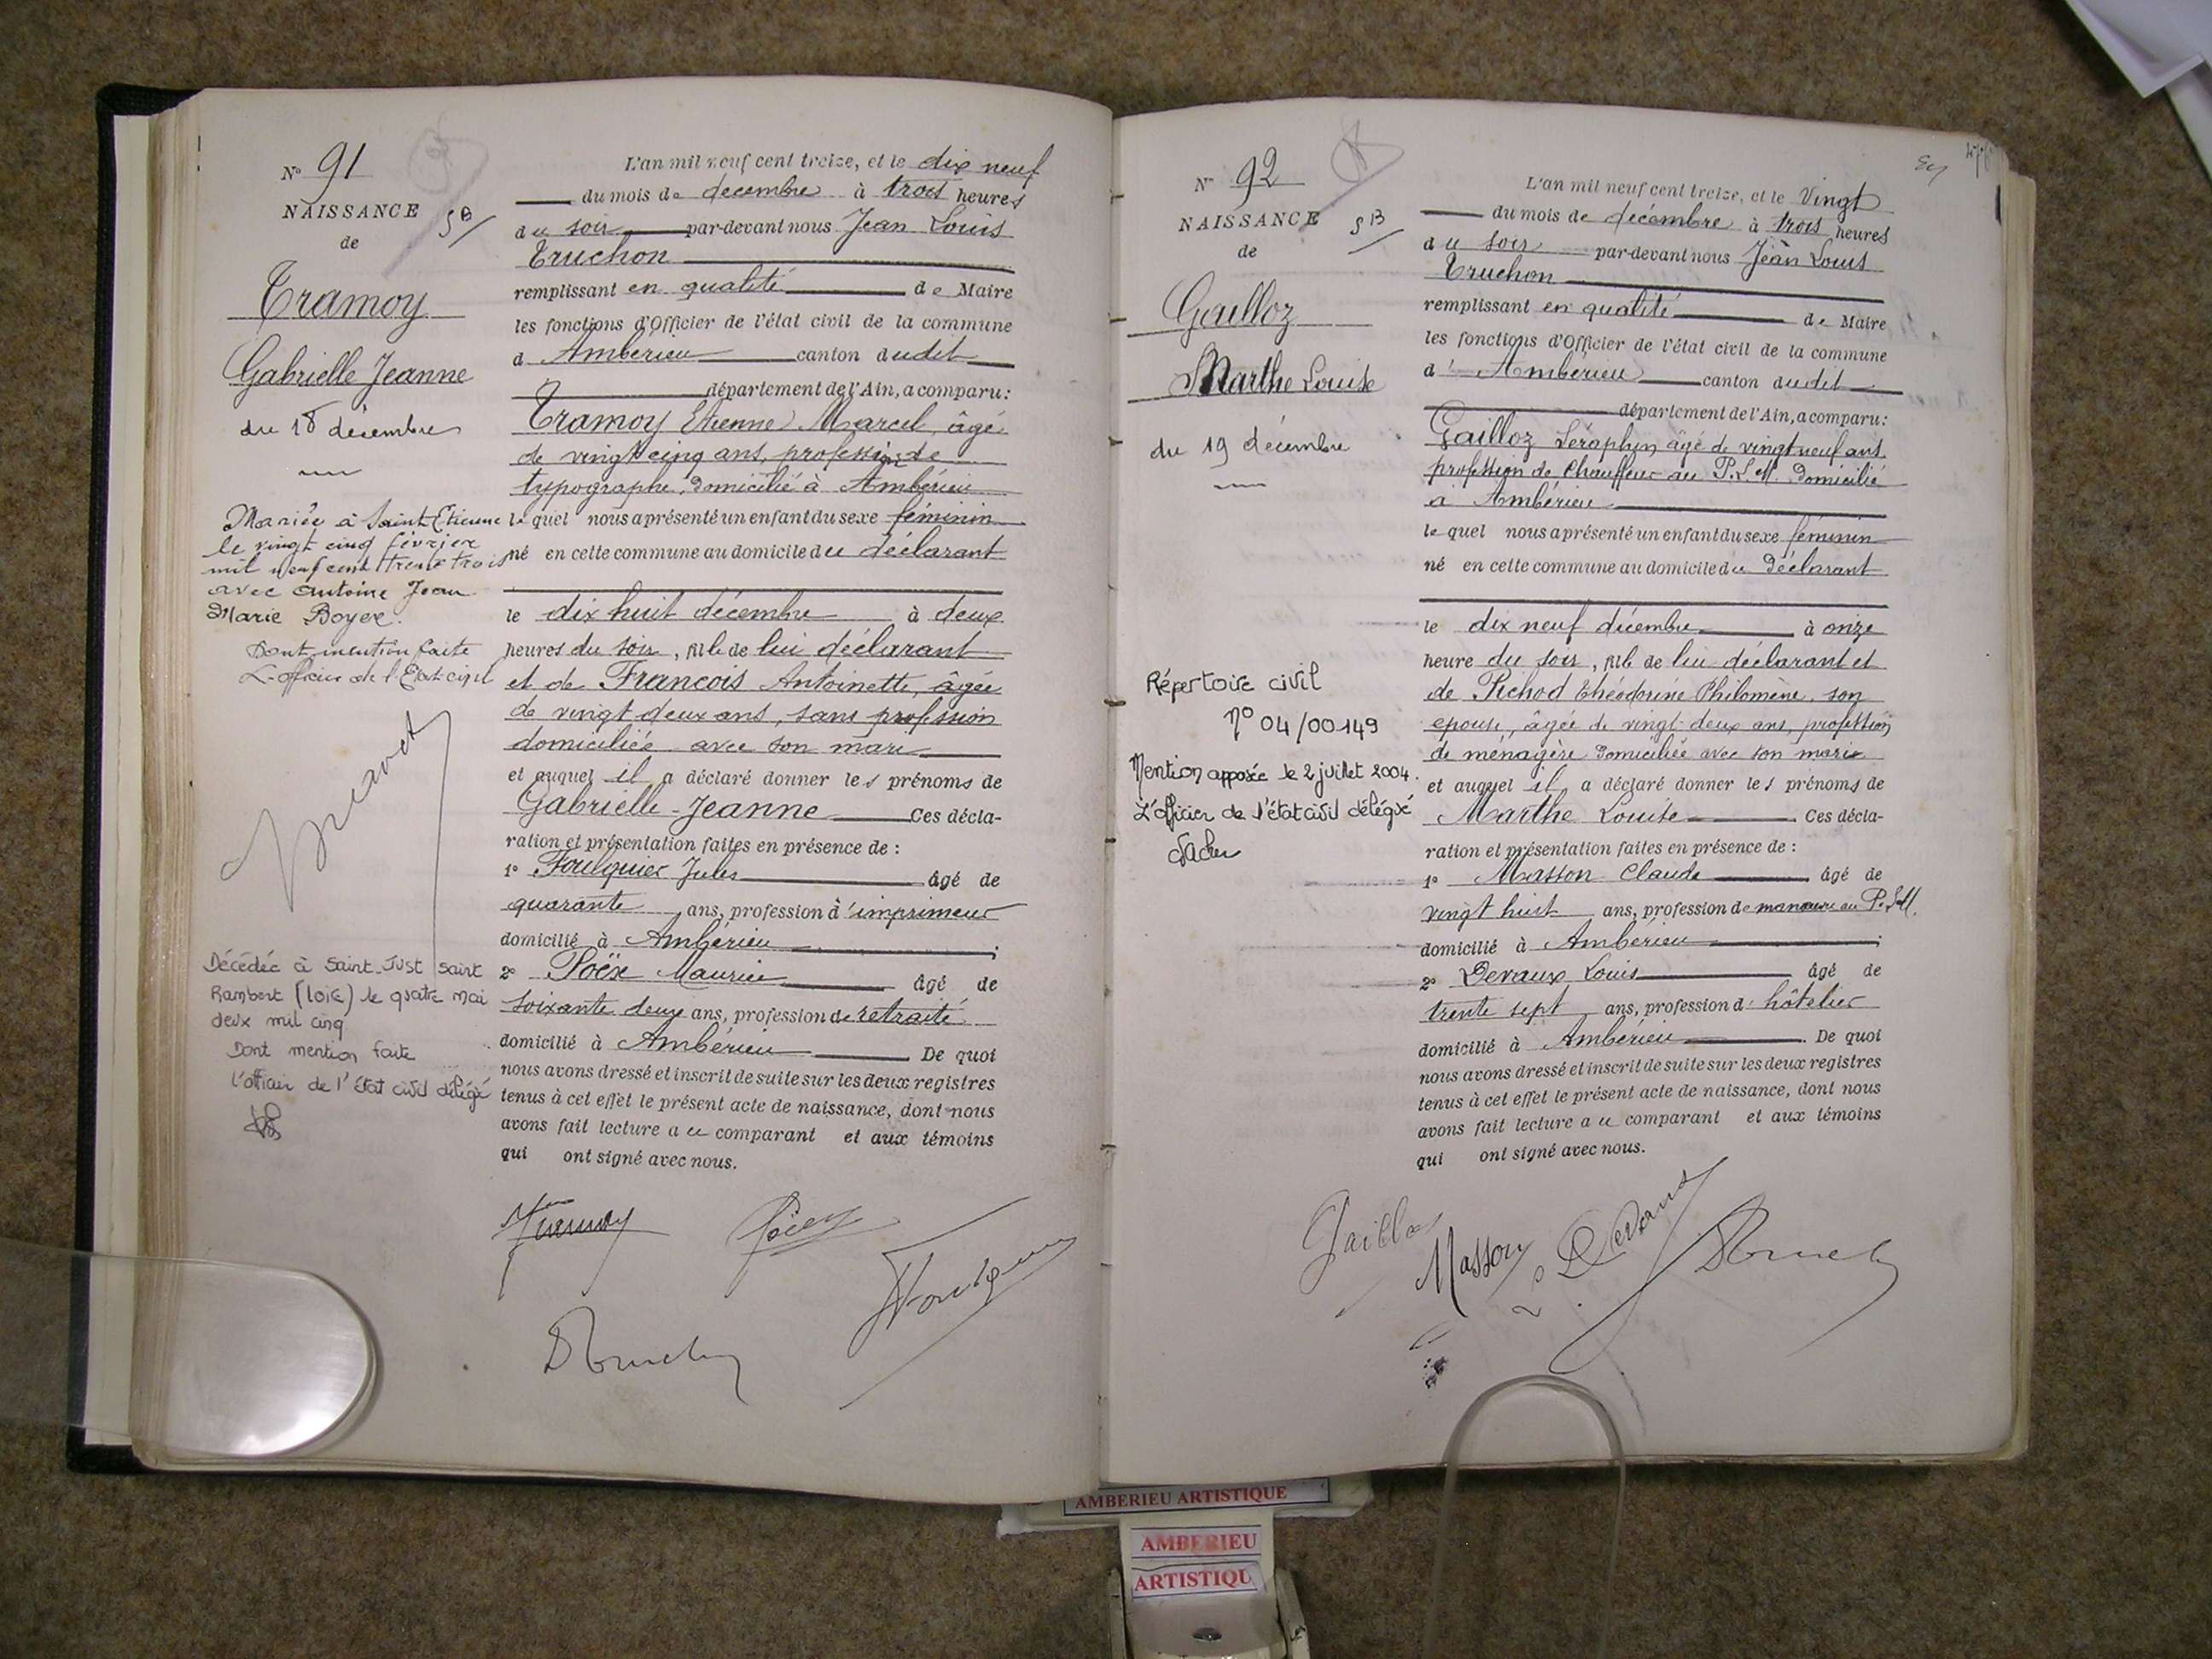 N° 91
NAISSANCE
de
Tramoy
Gabrielle Jeanne
du 18 décembre
Mariée à Saint Etienne
le vingt cinq février
mil neuf cent trente trois
avec Antoine Jean
Marie Boyer.
Dont mention faite
L'officier de l'Etat civil
Décédée à Saint-Just Saint
Rambert (loire) le quatre mai
deux mil cinq
Dont mention faite
l'officier de l'état civil délégué
L'an mil neuf cent treize, et le dix neuf
du mois de décembre à trois heures
du soir par-devant nous Jean Louis
Truchon
remplissant en qualité de Maire
les fonctions d'Officier de l'état civil de la commune
d Ambérieu canton dudit
département de l'Ain, a comparu:
Tramoy Etienne Marcel, âgé
de vingt cinq ans, profession de
typographe, domicilié à Ambérieu
lequel nous a présenté un enfant du sexe féminin
né en cette commune au domicile du déclarant
le dix huit décembre à deux
heures du soir, fille de lui déclarant
et de François Antoinette, âgée
de vingt deux ans, sans profession
domiciliée avec son mari
et auquel il a déclaré donner les prénoms de
Gabrielle-Jeanne Ces décla-
ration et présentation faites en présence de :
1° Foulquier Jules âgé de
quarante ans, profession d'imprimeur
domicilié à Ambérieu ;
2° Poëx Maurice âgé de
soixante deux ans, profession de retraité
domicilié à Ambérieu De quoi
nous avons dressé et inscrit de suite sur les deux registres
tenus à cet effet le présent acte de naissance, dont nous
avons fait lecture au comparant et aux témoins
qui ont signé avec nous.
Tramoy
N° 92
NAISSANCE
de
Gailloz
Marthe Louise
du 19 décembre
Répertoire civil
N° 04/00149
Mention apposée le 2 juillet 2004.
L'officier de l'état civil délégué
L'an mil neuf cent treize, et le Vingt
du mois de décembre à trois heures
du soir par-devant nous Jean Louis
Truchon
remplissant en qualité de Maire
les fonctions d'Officier de l'état civil de la commune
d' Ambérieu canton dudit
département de l'Ain, a comparu:
Gailloz Séraphin âgé de vingt neuf ans
profession de Chauffeur au P.L.M. domicilié
à Ambérieu
lequel nous a présenté un enfant du sexe féminin
né en cette commune au domicile du déclarant
le dix neuf décembre à onze
heure du soir, fille de lui déclarant et
de Pichod Théodorine Philomène, son
épouse, âgée de vingt-deux ans, profession
de ménagère domiciliée avec son mari
et auquel il a déclaré donner les prénoms de
Marthe Louise Ces décla-
ration et présentation faites en présence de :
1° Masson Claude âgé de
vingt huit ans, profession de manœuvre au P.L.M.
domicilié à Ambérieu ;
2° Devaux Louis âgé de
trente sept ans, profession d'hôtelier
domicilié à Ambérieu De quoi
nous avons dressé et inscrit de suite sur les deux registres
tenus à cet effet le présent acte de naissance, dont nous
avons fait lecture au comparant et aux témoins
qui ont signé avec nous.
Gailloz
Masson
Devaux
AMBERIEU ARTISTIQUE
AMBERIEU
ARTISTIQU